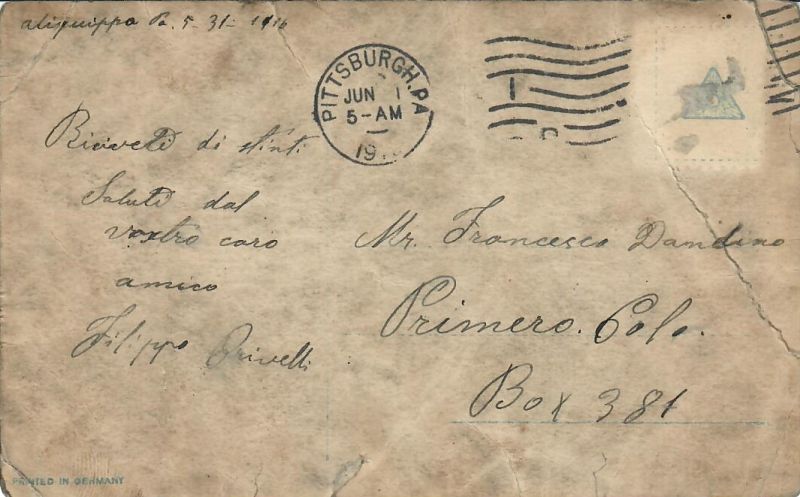 aliquippa Pa. 5-31-1916
PITTSBURGH, PA
JUN 1
5-AM
19
Riceveti di stinti
Saluti dal
vostro caro
amico
Filippo Crivelli
Mr. Francesco Dandino
Primero. Colo.
Box 381
PRINTED IN GERMANY